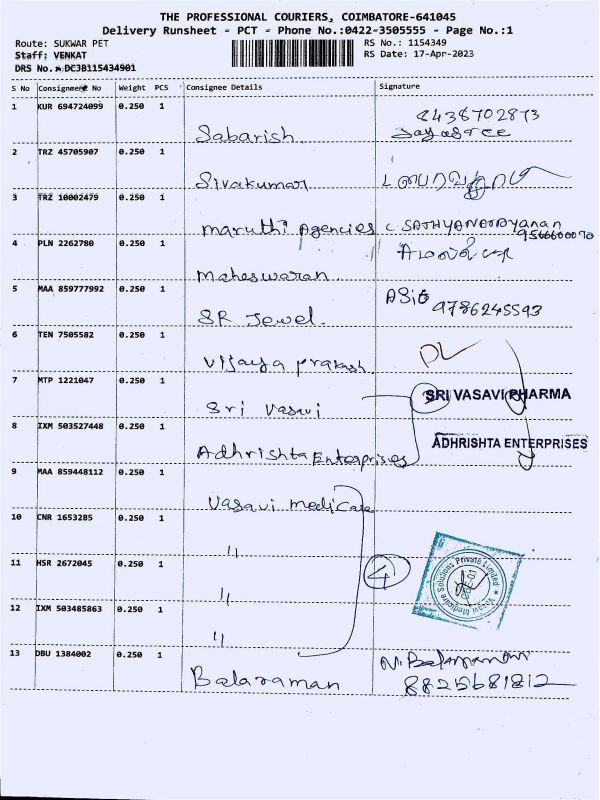 THE PROFESSIONAL COURIERS, COIMBATORE-641045
Delivery Runsheet - PCT - Phone No.:0422-3505555 - Page No.:1
Route: SUKWAR PET RS No.: 1154349
Staff: VENKAT RS Date: 17-Apr-2023
DRS No.: DCJB115434901
S No Consignment No Weight PCS Consignee Details Signature
1 KUR 694724099 0.250 1 Sabarish 9438702873
Jayasree
2 TRZ 45705907 0.250 1 Sivakumar
3 TRZ 10002479 0.250 1 Maruthi Agencies C. SATHYANARAYANAN
9566600070
4 PLN 2262780 0.250 1 Maheswaran
5 MAA 859777992 0.250 1 SR Jewel. ASiG
9786245593
6 TEN 7505582 0.250 1 Vijaya prakash DL
7 MTP 1221047 0.250 1 Sri Vasavi SRI VASAVI PHARMA
8 IXM 503527448 0.250 1 Adhrishta Enterprises ADHRISHTA ENTERPRISES
9 MAA 859448112 0.250 1 Vasavi medicare
10 CNR 1653285 0.250 1 "
11 HSR 2672045 0.250 1 " 4 Vasavi Medicare Solutions Private Limited
12 IXM 503485863 0.250 1 "
13 DBU 1384002 0.250 1 Balaraman
8825681812